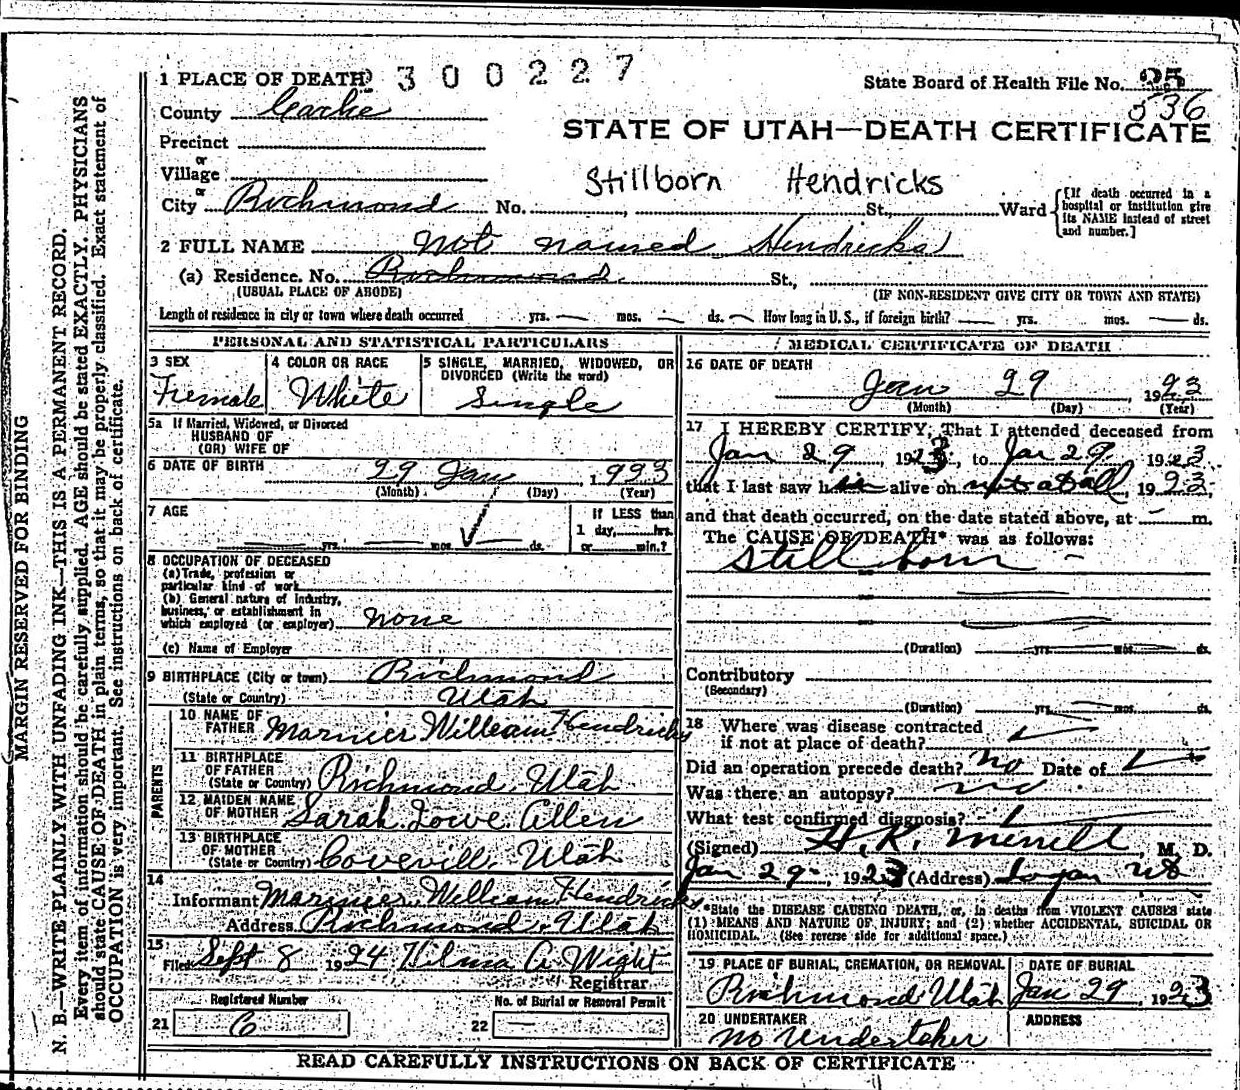 1 PLACE OF DEATH 2300227 State Board of Health File No. 25
536
County Cache
STATE OF UTAH—DEATH CERTIFICATE
Precinct
or
Village
or
Stillborn Hendricks
City Richmond No. St., Ward {[If death occurred in a hospital or institution give its NAME instead of street and number.]
2 FULL NAME Not named Hendricks
(a) Residence. No. Richmond St.,
(USUAL PLACE OF ABODE) (IF NON-RESIDENT GIVE CITY OR TOWN AND STATE)
Length of residence in city or town where death occurred yrs. — mos. — ds. — How long in U. S., if foreign birth? — yrs. mos. — ds.
PERSONAL AND STATISTICAL PARTICULARS
3 SEX 4 COLOR OR RACE 5 SINGLE, MARRIED, WIDOWED, OR
DIVORCED (Write the word)
Female White Single
5a If Married, Widowed, or Divorced
HUSBAND OF
(OR) WIFE OF
6 DATE OF BIRTH 29 Jan 1923
(Month) (Day) (Year)
7 AGE If LESS than
yrs. mos. ds. 1 day, hrs.
or min.?
8 OCCUPATION OF DECEASED
(a) Trade, profession or
particular kind of work
(b) General nature of industry,
business, or establishment in
which employed (or employer) none
(c) Name of Employer
9 BIRTHPLACE (City or town) Richmond
(State or Country) Utah
PARENTS
10 NAME OF
FATHER Marinier William Hendricks
11 BIRTHPLACE
OF FATHER
(State or Country) Richmond, Utah
12 MAIDEN NAME
OF MOTHER Sarah Lowe Allen
13 BIRTHPLACE
OF MOTHER
(State or Country) Coveville, Utah
14
Informant Marinier William Hendricks
Address Richmond, Utah
15
Filed Sept 8 1924 Wilma A Wight
Registrar
Registered Number No. of Burial or Removal Permit
21 6 22 —
MEDICAL CERTIFICATE OF DEATH
16 DATE OF DEATH
Jan 29, 1923
(Month) (Day) (Year)
17 I HEREBY CERTIFY, That I attended deceased from
Jan 29, 1923, to Jan 29, 1923
that I last saw him alive on not at all, 1923,
and that death occurred, on the date stated above, at — m.
The CAUSE OF DEATH* was as follows:
still born —
(Duration) yrs. mos. ds.
Contributory
(Secondary)
(Duration) yrs. mos. ds.
18 Where was disease contracted
if not at place of death?
Did an operation precede death? no Date of
Was there an autopsy? no
What test confirmed diagnosis?
(Signed) H. K. Merrill, M. D.
Jan 29, 1923 (Address) Logan Ut
*State the DISEASE CAUSING DEATH, or, in deaths from VIOLENT CAUSES state
(1) MEANS AND NATURE OF INJURY; and (2) whether ACCIDENTAL, SUICIDAL OR
HOMICIDAL. (See reverse side for additional space.)
19 PLACE OF BURIAL, CREMATION, OR REMOVAL DATE OF BURIAL
Richmond Utah Jan 29, 1923
20 UNDERTAKER ADDRESS
No Undertaker
READ CAREFULLY INSTRUCTIONS ON BACK OF CERTIFICATE
MARGIN RESERVED FOR BINDING
N. B.—WRITE PLAINLY WITH UNFADING INK—THIS IS A PERMANENT RECORD.
Every item of information should be carefully supplied. AGE should be stated EXACTLY. PHYSICIANS
should state CAUSE OF DEATH in plain terms, so that it may be properly classified. Exact statement of
OCCUPATION is very important. See instructions on back of certificate.